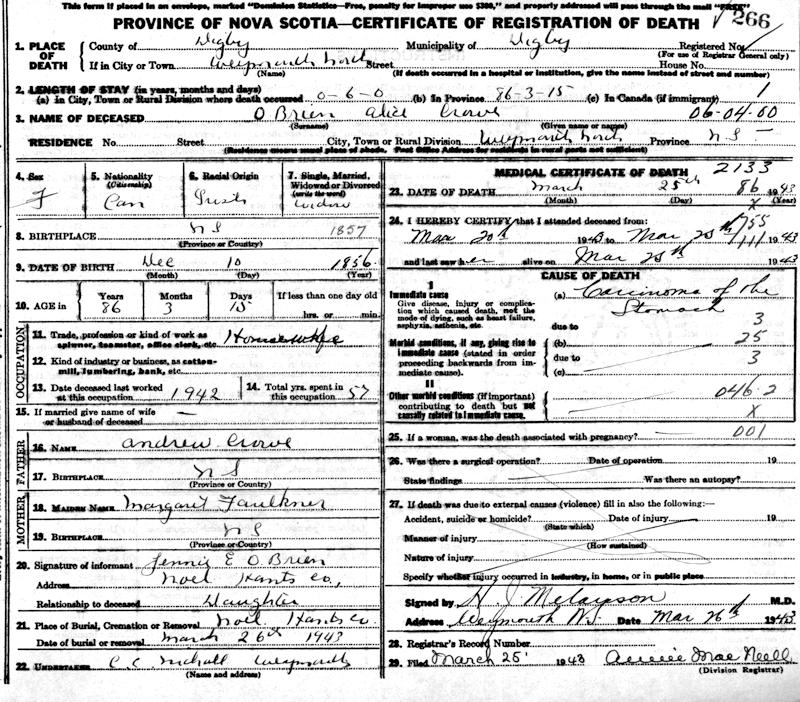 This form if placed in an envelope, marked "Dominion Statistics—Free, penalty for improper use $300," and properly addressed will pass through the mail "FREE"
PROVINCE OF NOVA SCOTIA—CERTIFICATE OF REGISTRATION OF DEATH √ 266
1. PLACE OF DEATH
County of Digby Municipality of Digby Registered No.
(For use of Registrar General only)
If in City or Town Weymouth North Street House No.
(Name) (If death occurred in a hospital or institution, give the name instead of street and number)
2. LENGTH OF STAY (in years, months and days)
(a) In City, Town or Rural Division where death occurred 0-6-0 (b) In Province 86-3-15 (c) In Canada (if immigrant) 1
3. NAME OF DECEASED O'Brien Alice Crowe 06-04-00
(Surname) (Given name or names)
RESIDENCE No. Street City, Town or Rural Division Weymouth North Province N S
(Residence means usual place of abode. Post Office Address for residents in rural parts not sufficient)
4. Sex F
5. Nationality (Citizenship) Can
6. Racial Origin Irish
7. Single, Married, Widowed or Divorced (write the word) Widow
8. BIRTHPLACE N S 1857
(Province or Country)
9. DATE OF BIRTH Dec 10 1856
(Month) (Day) (Year)
10. AGE in Years 86 Months 3 Days 15 If less than one day old hrs. or min.
OCCUPATION
11. Trade, profession or kind of work as spinner, teamster, office clerk, etc. Housewife
12. Kind of industry or business, as cotton-mill, lumbering, bank, etc.
13. Date deceased last worked at this occupation 1942
14. Total yrs. spent in this occupation 57
15. If married give name of wife or husband of deceased —
FATHER
16. NAME Andrew Crowe
17. BIRTHPLACE N S
(Province or Country)
MOTHER
18. MAIDEN NAME Margaret Faulkner
19. BIRTHPLACE N S
(Province or Country)
20. Signature of informant Jennie E O'Brien
Address Noel Hants Co,
Relationship to deceased Daughter
21. Place of Burial, Cremation or Removal Noel Hants Co
Date of burial or removal March 26th 1943
22. UNDERTAKER C. C. Weymouth
(Name and address)
MEDICAL CERTIFICATE OF DEATH 2133
23. DATE OF DEATH March 25th 86 1943
(Month) (Day) x (Year)
24. I HEREBY CERTIFY that I attended deceased from:
Mar 20th 1943 to Mar 25th 1943
755
111
and last saw her alive on Mar 25th 1943
CAUSE OF DEATH
I
Immediate cause
Give disease, injury or complication which caused death, not the mode of dying, such as heart failure, asphyxia, asthenia, etc.
(a) Carcinoma of the Stomach 3
due to
Morbid conditions, if any, giving rise to immediate cause (stated in order proceeding backwards from immediate cause).
(b) 25
due to 3
(c)
II
Other morbid conditions (if important) contributing to death but not causally related to immediate cause.
046.2
x
25. If a woman, was the death associated with pregnancy? 001
26. Was there a surgical operation? Date of operation 19
State findings Was there an autopsy?
27. If death was due to external causes (violence) fill in also the following:—
Accident, suicide or homicide? Date of injury 19
(State which)
Manner of injury
(How sustained)
Nature of injury
Specify whether injury occurred in industry, in home, or in public place
Signed by H. J. M.D.
Address Weymouth N.S. Date Mar 26th 1943
28. Registrar's Record Number
29. Filed March 25 1943 Annie Mae Neell
(Division Registrar)